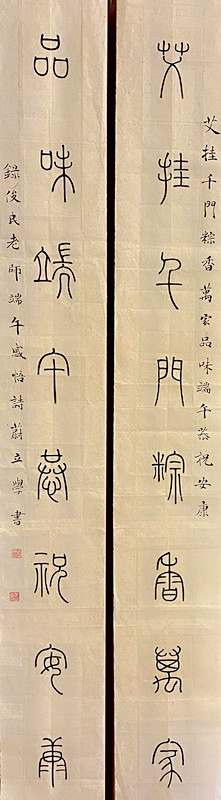 艾挂千門粽香萬家
艾挂千門粽香萬家品味端午恭祝安康
品味端午恭祝安康
錄俊良老師端午感悟詩蔚立學書